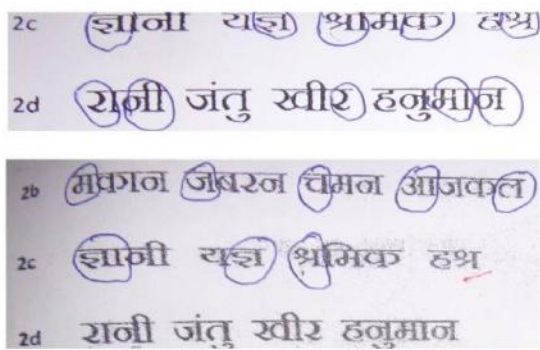 2c ज्ञानी यज्ञ श्रमिक हश्र
2d रानी जंतु खीर हनुमान
2b मकान जबरन चमन आजकल
2c ज्ञानी यज्ञ श्रमिक हश्र
2d रानी जंतु खीर हनुमान